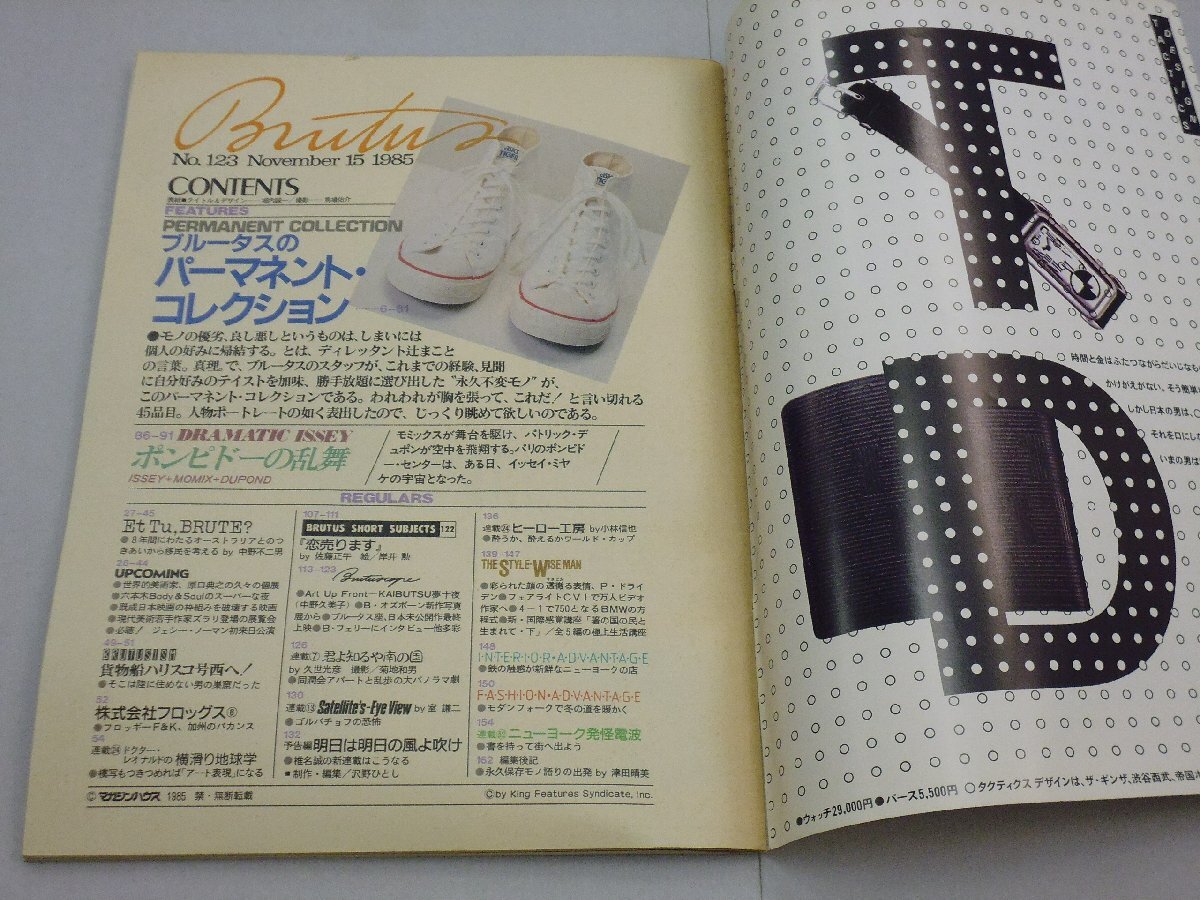 Brutus
No. 123 November 15 1985
CONTENTS
表紙■タイトル&デザイン
FEATURES
PERMANENT COLLECTION
ブルータスの
パーマネント・
コレクション
6-81
●モノの優劣、良し悪しというものは、しまいには
個人の好みに帰結する。とは、ディレッタント辻まこと
の言葉。真理。で、ブルータスのスタッフが、これまでの経験、見聞
に自分好みのテイストを加味、勝手放題に選び出した“永久不変モノ”が、
このパーマネント・コレクションである。われわれが胸を張って、これだ!と言い切れる
45品目。人物ポートレートの如く表出したので、じっくり眺めて欲しいのである。
86-91 DRAMATIC ISSEY
ポンピドーの乱舞
ISSEY+MOMIX+DUPOND
モミックスが舞台を駆け、パトリック・デ
ュポンが空中を飛翔する。パリのポンピド
ー・センターは、ある日、イッセイ・ミヤ
ケの宇宙となった。
REGULARS
27-45
Et Tu, BRUTE?
●8年間にわたるオーストラリアとのつ
きあいから移民を考える by 中野不二男
26-44
UPCOMING
●世界的美術家、原口典之の久々の個展
●六本木Body&Soulのスーパーな夜
●既成日本映画の枠組みを破壊する映画
●現代美術若手作家ズラリ登場の展覧会
●必聴! ジェシー・ノーマン初来日公演
49-51
BRUTUSISM
貨物船ハリスコ号西へ!
●そこは陸に住めない男の巣窟だった
52
株式会社フロッグス⑧
●フロッギーF&K、加州のバカンス
54
連載㉔ドクター・
レオナルドの 横滑り地球学
●複写もつきつめれば「アート表現」になる
107-111
BRUTUS SHORT SUBJECTS 122
『恋売ります』
by 佐藤正午 絵/岸井勲
113-123 Brutuscope
●Art Up Front—KAIBUTSU夢十夜
(中野久美子)●B・オズボーン新作写真
展から●ブルータス座、日本未公開作最終
上映●B・フェリーにインタビュー他多彩
126
連載⑦君よ知るや南の国
by 久世光彦 撮影/菊地和男
●同潤会アパートと乱歩の大パノラマ劇
130
連載⑬Satellite's-Eye View by 室 謙二
●ゴルバチョフの恐怖
132
予告編 明日は明日の風よ吹け
●椎名誠の新連載はこうなる
■制作・編集/沢野ひとし
136
連載㉔ヒーロー工房 by小林信也
●酔うか、酔えるかワールド・カップ
139-147
THE STYLE-WISE MAN
●彩られた顔の透徹る表情、P・ドライ
デン●フェアライトCVIで万人ビデオ
作家へ●4-1で750となるBMWの方
程式●新・国際感覚講座「箸の国の民と
生まれて・下」/全5編の極上生活講座
148
INTERIOR・ADVANTAGE
●鉄の触感が新鮮なニューヨークの店
150
FASHION・ADVANTAGE
●モダンフォークで冬の道を暖かく
154
ニューヨーク発怪電波
●書を持って街へ出よう
162 編集後記
●永久保存モノ語りの出発 by 津田晴美
© マガジンハウス 1985 禁・無断転載
©by King Features Syndicate, Inc.
TACTICS
DESIGN
T
D
時間と金はふたつながらだいじなも
かけがえがない。そう簡単
しかし日本の男は、
それを口にし
いまの男は
●ウォッチ29,000円 ●パース5,500円 ○タクティクス デザインは、ザ・ギンザ、渋谷西武、帝国